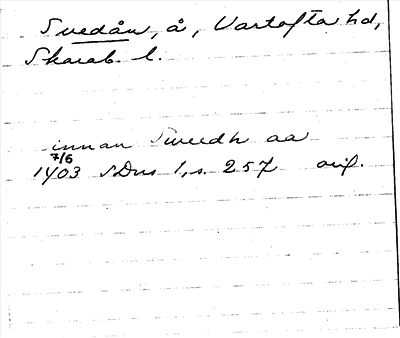 Svedån, å, Vartofta hd,
Skarab. l.
innan Swedh aa
7/6
1403 SDns 1, s. 257 orig.